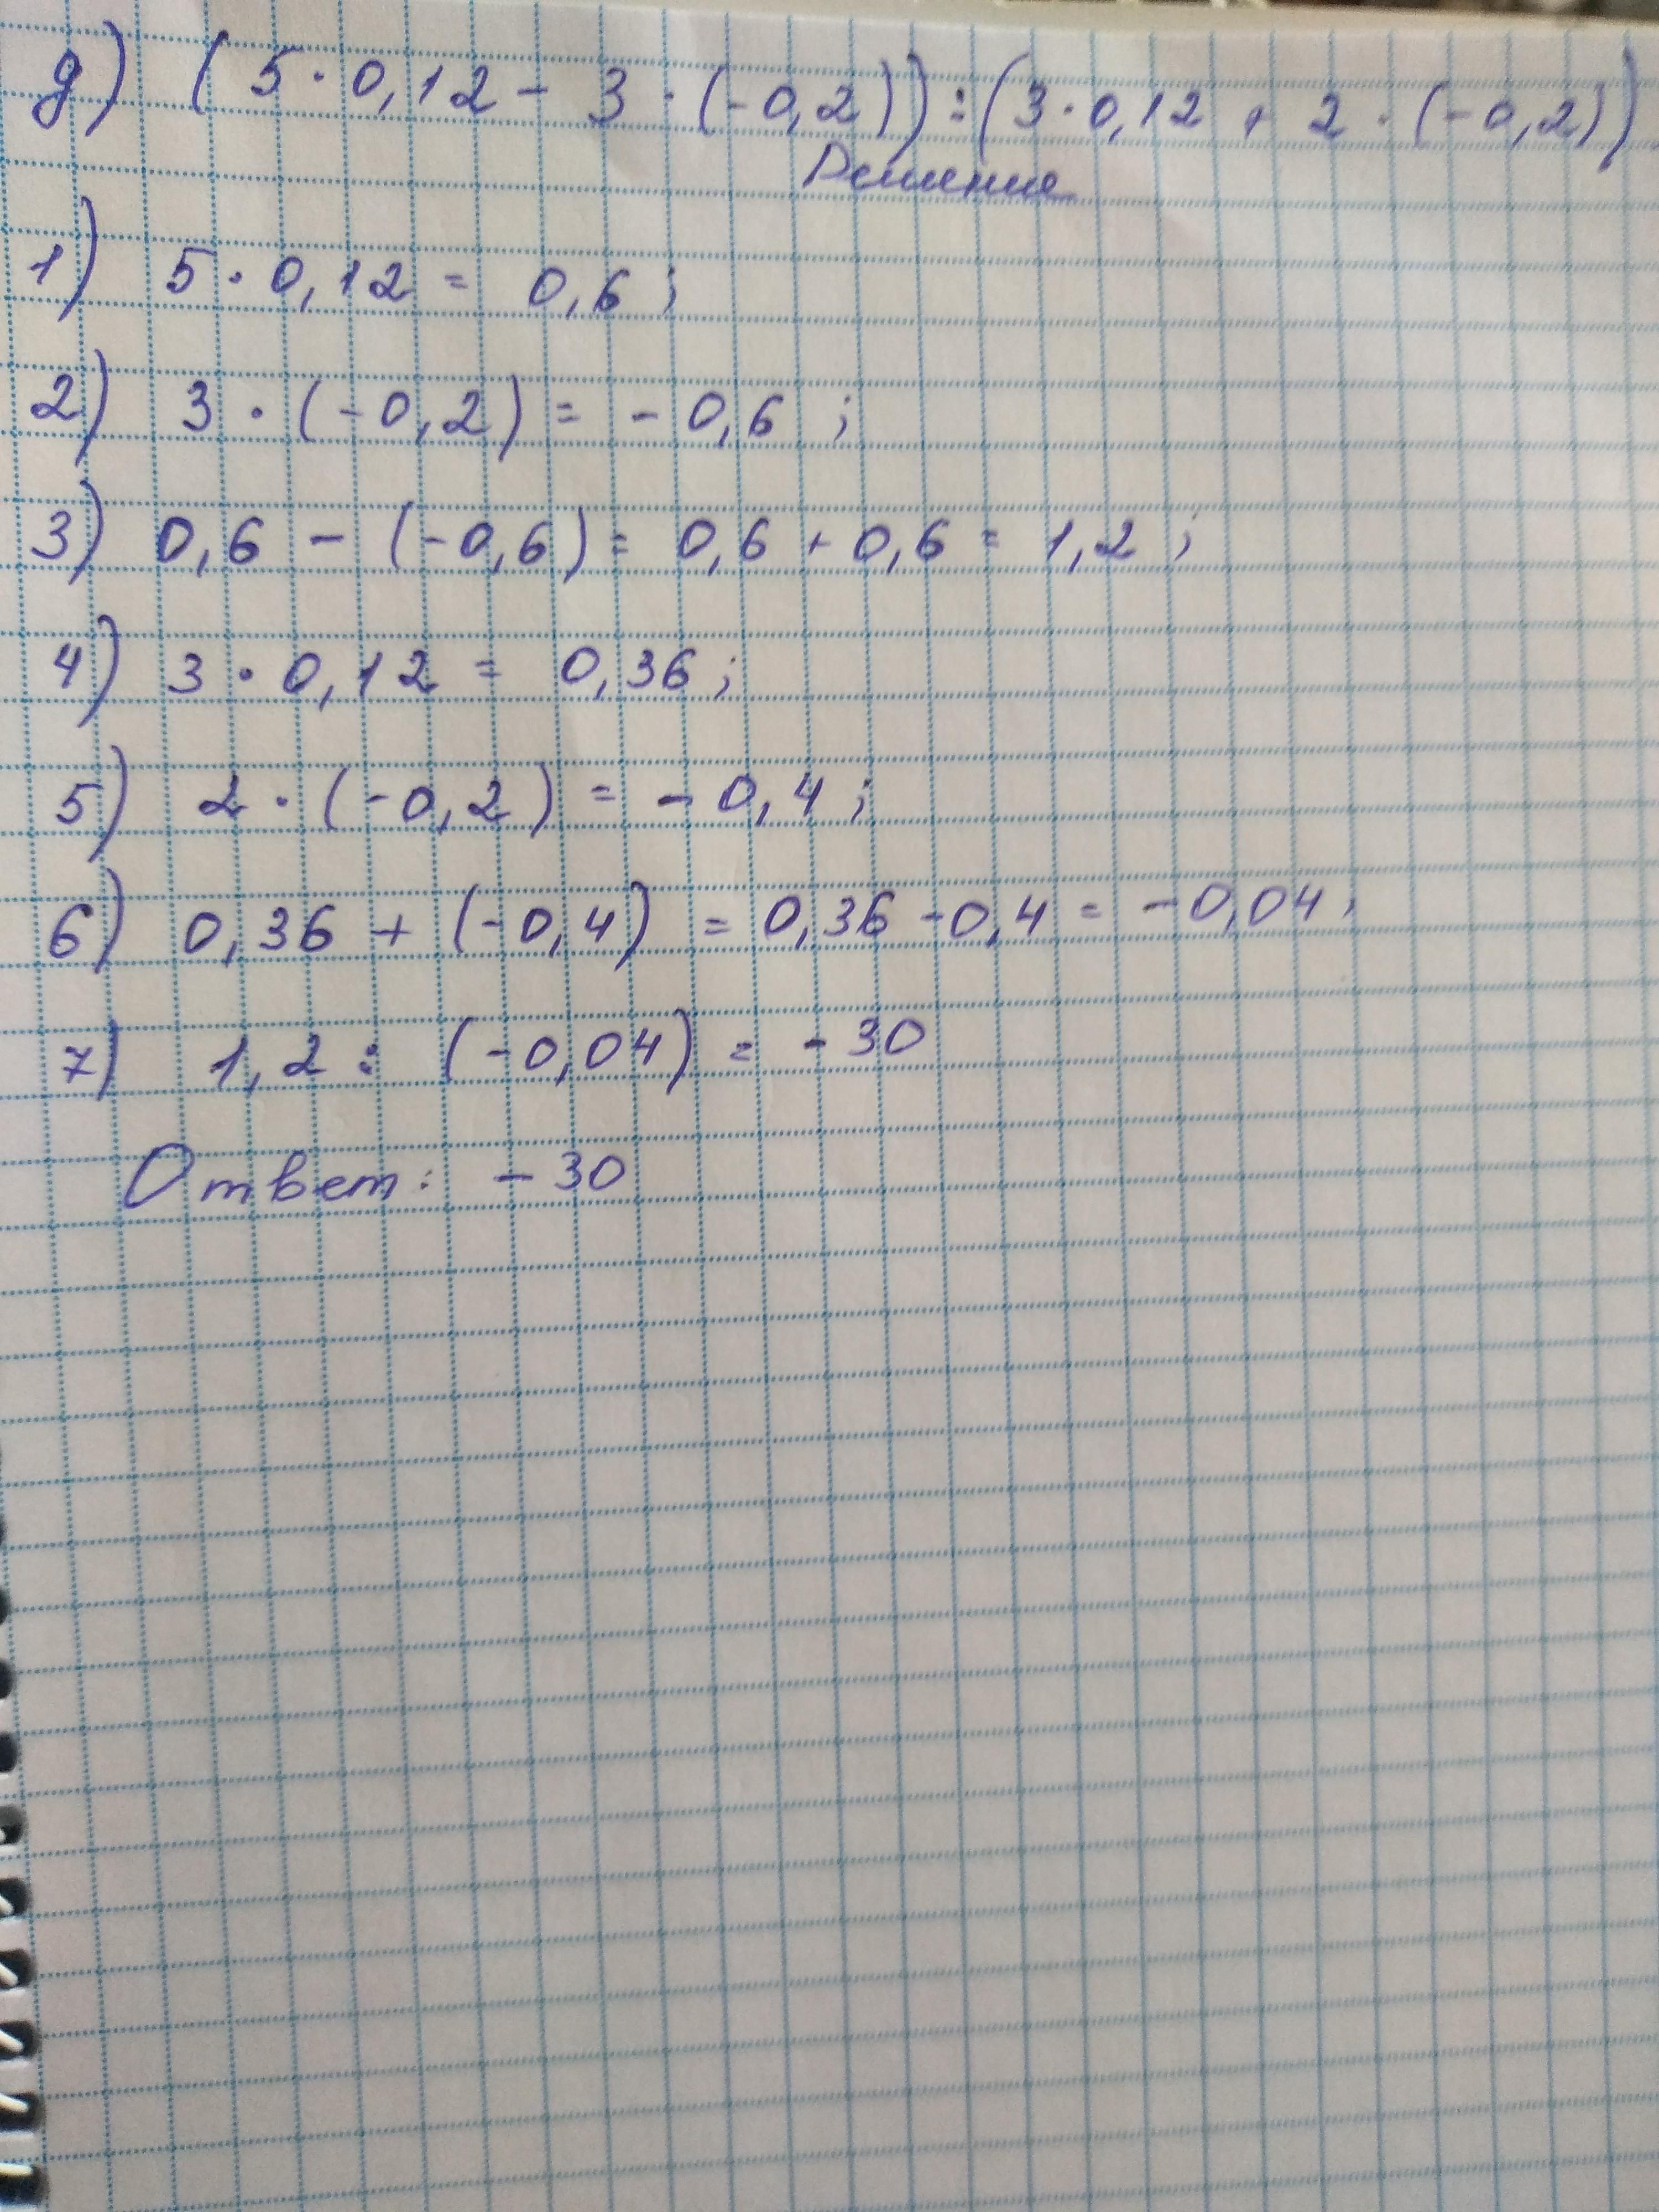 д) (5·0,12 - 3·(-0,2)):(3·0,12 + 2·(-0,2))
Решение
1) 5·0,12 = 0,6;
2) 3·(-0,2) = -0,6;
3) 0,6 - (-0,6) = 0,6 + 0,6 = 1,2;
4) 3·0,12 = 0,36;
5) 2·(-0,2) = -0,4;
6) 0,36 + (-0,4) = 0,36 - 0,4 = -0,04;
7) 1,2 : (-0,04) = -30
Ответ: -30